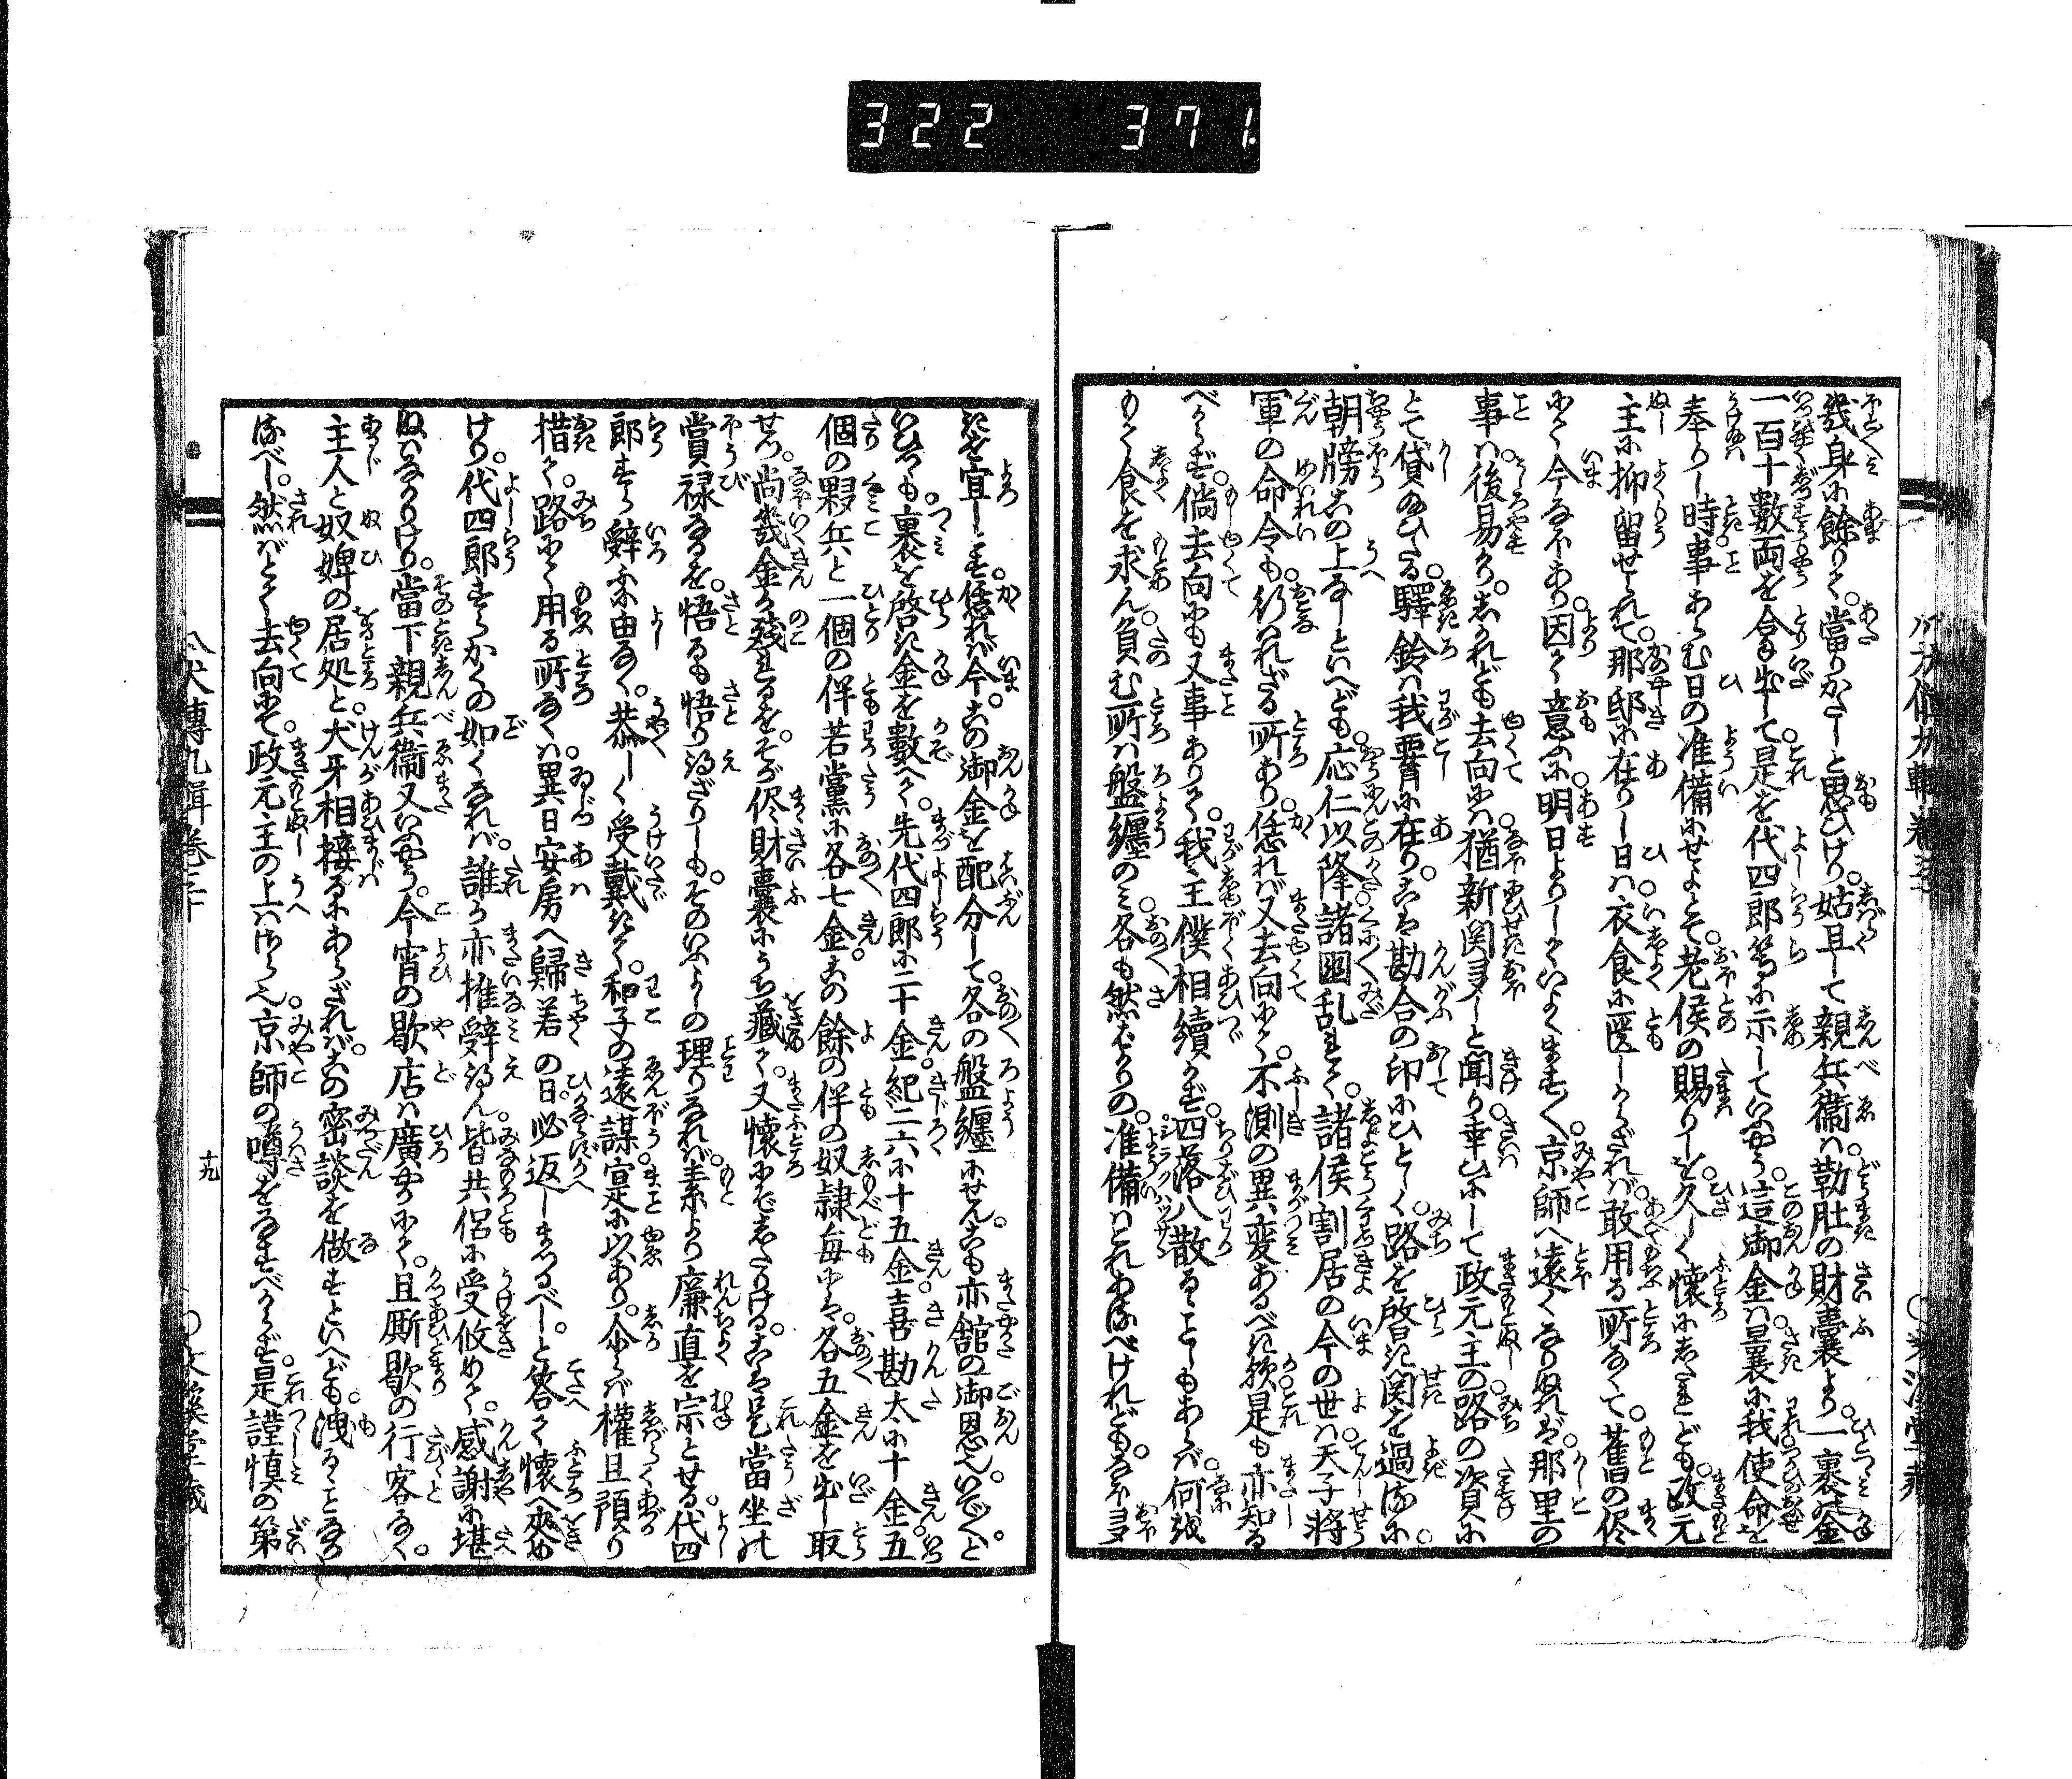 322 371
幾身に餘りて。當りかたしと思ひけり。姑且して親兵衞は。勒肚の財囊より。一裹の金
一百十數両を合も出して。是を代四郎等に示していふやう。這御金は。曩に我使命を
奉りし時。事あらむ日の准備にせよとて。老侯の賜りしを。久しく懷にしたれども。政元
主に抑留せられて。那邸に在りし日は。衣食に匱しからざれば。敢用る所なくて。舊の侭
にて今なほあり。因て意ふに。明日よりしていよゝますます。京師へ遠くなりぬれば。那里の
事は後易かり。しかれども去向には。猶新関多しと聞り。幸ひにして政元主の。路の資に
とて貸給ひたる。驛鈴は我要に在り。こは勘合の印にひとしく。路を啓き関を過るに。
朝牓この上なしといへども。応仁以降諸國乱れて。諸侯割居の今の世は。天子將
軍の命令も。行れざる所あり。恁れば又去向にて。不測の異変あるべき歟。是も亦知る
べからず。倘去向にも又事ありて。我主僕相續かず。四落八散ることもあらば。何を
もて食を求ん。負む所は盤纏のみ。各も然ばかりの。准備はこれあるべけれども。なほ多
きを宜しとす。恁れば今。この御金を配分して。各の盤纏にせん。こも亦舘の御恩也。いざ〳〵と
いひつゝも。裹を啓き金を數へて。先代四郎に二十金。紀二六に十五金。喜勘太に十金。五
個の夥兵と一個の伴若黨に各七金。この餘の伴の奴隷毎には。各五金を出し取
せつ。尚幾金か殘れるを。そが侭財囊にうち藏て。又懷にぞしたりける。こは是當坐の
賞禄なるを。悟るも悟り得ざりしも。そのいふよしの理りなれば。素より廉直を宗とせる。代四
郎すら辞ふに由なく。恭しく受戴きて。和子の遠謀。寔に以あり。介らば權且預り
措て。路にて用る所なくは。異日安房へ歸着の日。必返しまゐらすべし。と答て懷へ夾め
けり。代四郎すらかくの如くなれば。誰か亦推辞得ん。皆共侶に受收めて。感謝に堪
ぬはなかりけり。當下親兵衞又いふやう。今宵の歇店は廣やかにて。且厮歇の行客なく。
主人と奴婢の居処と。犬牙相接るにあらざれば。この密談を做すといへども。洩ることなか
るべし。然ばとて去向にて。政元主の上はさら也。京師の噂をなすべからず。是謹愼の第
八犬傳九輯卷三十
十九